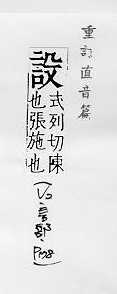 重訂直音篇
設
式列切陳
也張施也
(V2·言部·